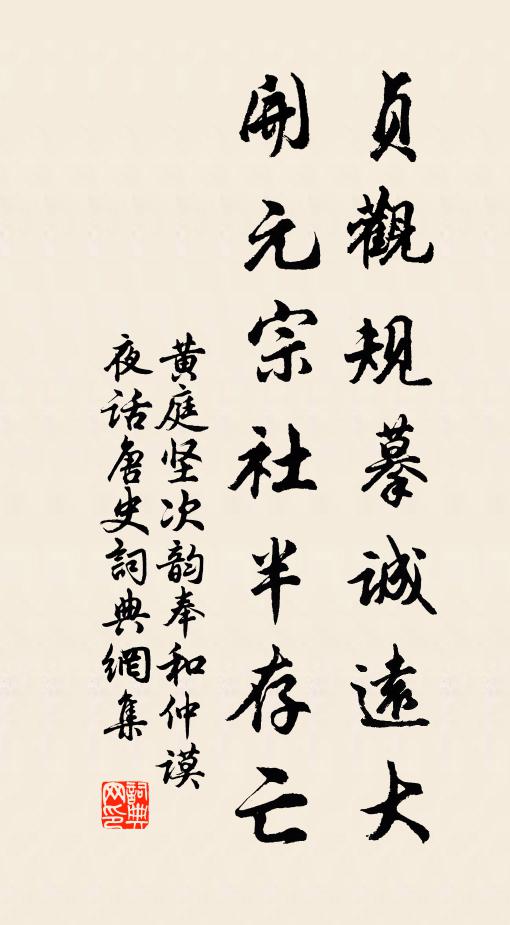 貞觀規摹誠遠大
開元宗社半存亡
黄庭坚次韵奉和仲谟
夜话唐史詞典網集
詞典网印